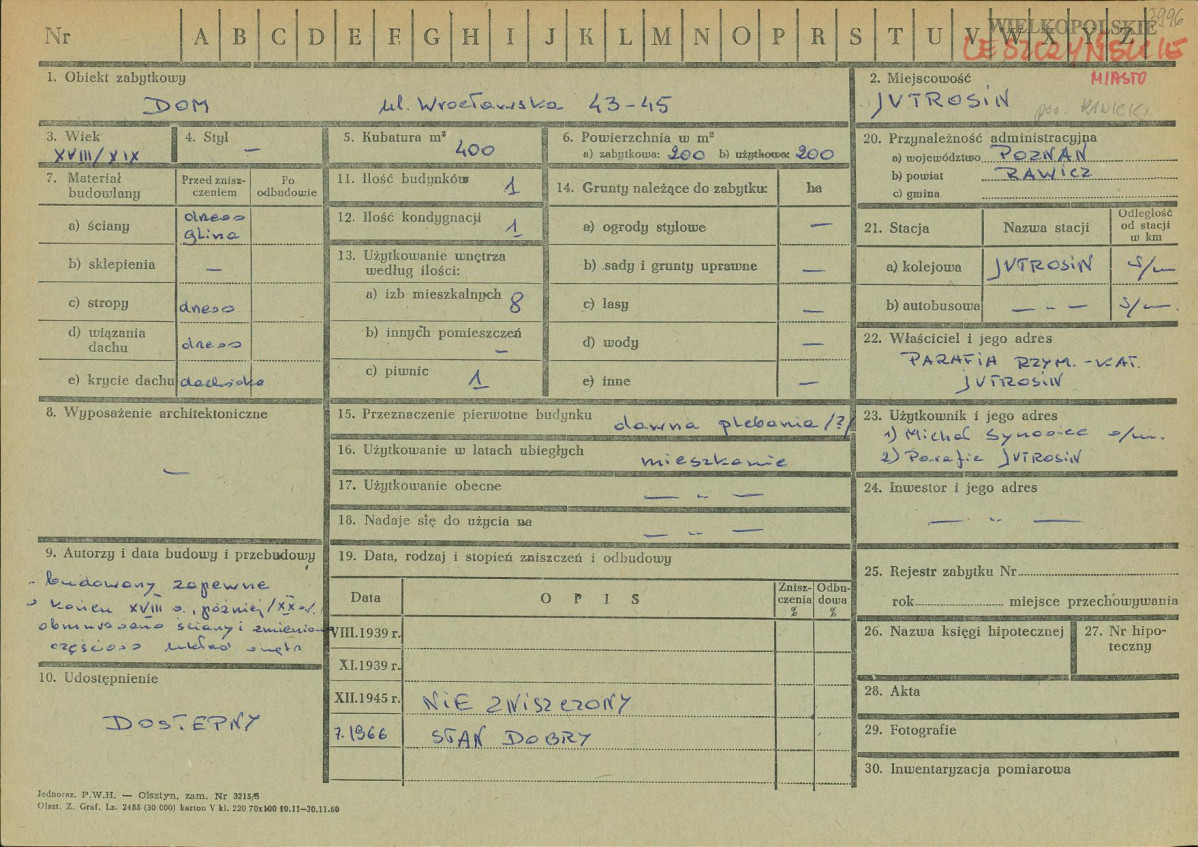 Nr A B C D E F G H I J K L M N O P R S T U V W X Y Z 3996
WIELKOPOLSKIE
LESZCZYŃSKIE
MIASTO
1. Obiekt zabytkowy
DOM ul. Wrocławska 43-45
2. Miejscowość
JUTROSIN
pow. RAWICKI
3. Wiek
XVIII/XIX
4. Styl
—
5. Kubatura m³
400
6. Powierzchnia w m²
a) zabytkowa: 200 b) użytkowa: 200
7. Materiał budowlany
Przed znisz-
czeniem
Po
odbudowie
a) ściany drewno
glina
b) sklepienia —
c) stropy drewno
d) wiązania
dachu drewno
e) krycie dachu dachówka
8. Wyposażenie architektoniczne
—
9. Autorzy i data budowy i przebudowy
- budowany zapewne
koniec XVIII w., później /XX w./
obmurowano ściany i zmieniono
częściowo układ wnętrz
10. Udostępnienie
DOSTĘPNY
11. Ilość budynków 1
12. Ilość kondygnacji 1
13. Użytkowanie wnętrza
według ilości:
a) izb mieszkalnych 8
b) innych pomieszczeń —
c) piwnic 1
14. Grunty należące do zabytku: ha
a) ogrody stylowe —
b) sady i grunty uprawne —
c) lasy —
d) wody —
e) inne —
15. Przeznaczenie pierwotne budynku dawna plebania /?/
16. Użytkowanie w latach ubiegłych mieszkanie
17. Użytkowanie obecne — „ —
18. Nadaje się do użycia na — „ —
19. Data, rodzaj i stopień zniszczeń i odbudowy
Data OPIS Znisz-
czenia
% Odbu-
dowa
%
VIII.1939 r.
XI.1939 r.
XII.1945 r. NIE ZNISZCZONY
7.1966 STAN DOBRY
20. Przynależność administracyjna
a) województwo POZNAŃ
b) powiat RAWICZ
c) gmina
21. Stacja Nazwa stacji Odległość
od stacji
w km
a) kolejowa JUTROSIN
b) autobusowa — „ —
22. Właściciel i jego adres
PARAFIA RZYM.-KAT.
JUTROSIN
23. Użytkownik i jego adres
1) Michał
2) Parafia JUTROSIN
24. Inwestor i jego adres
— „ —
25. Rejestr zabytku Nr
rok miejsce przechowywania
26. Nazwa księgi hipotecznej
27. Nr hipo-
teczny
28. Akta
29. Fotografie
30. Inwentaryzacja pomiarowa
Jednoraz. P.W.H. — Olsztyn, zam. Nr 3215/6
Olszt. Z. Graf. Lz. 2485 (30 000) karton V kl. 220 70x100 10.11—30.11.60